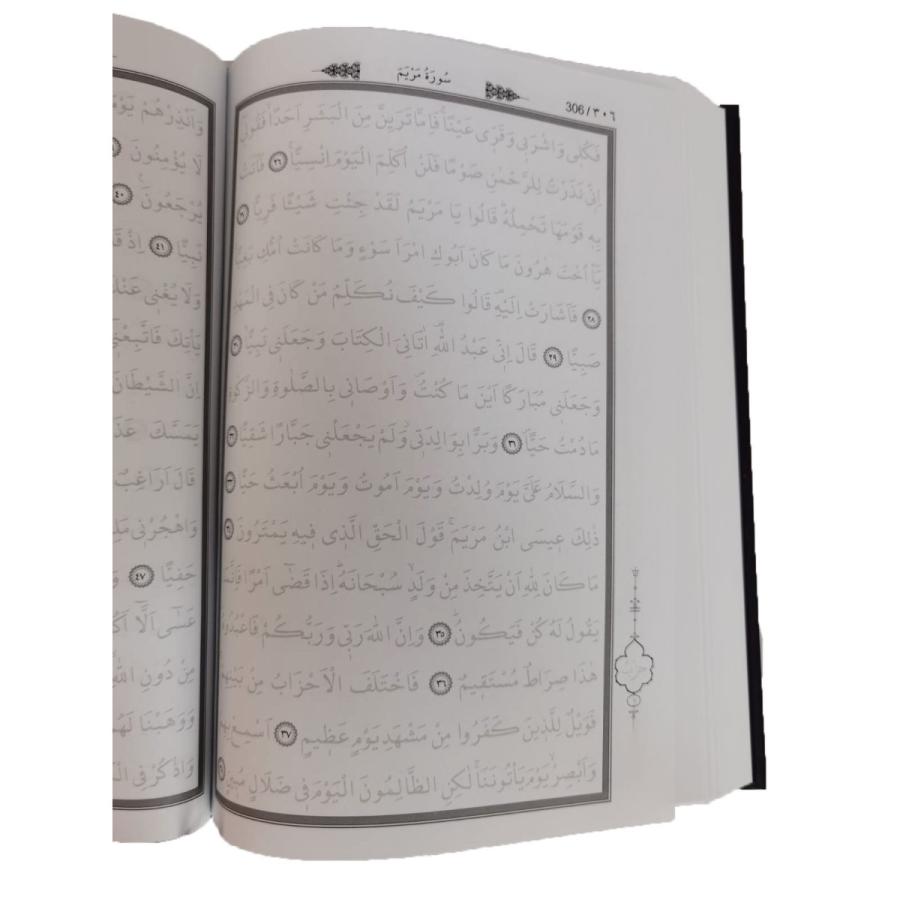 سُورَةُ مَرْيَمَ
306 / ٣٠٦
فَكُلٖى وَاشْرَبٖى وَقَرّٖى عَيْنًاۚ فَاِمَّا تَرَيِنَّ مِنَ الْبَشَرِ اَحَدًاۙ فَقُولٖٓى
اِنّٖى نَذَرْتُ لِلرَّحْمٰنِ صَوْمًا فَلَنْ اُكَلِّمَ الْيَوْمَ اِنْسِيًّاۚ ٢٦ فَاَتَتْ
بِهٖ قَوْمَهَا تَحْمِلُهُۜ قَالُوا يَا مَرْيَمُ لَقَدْ جِئْتِ شَيْـًٔا فَرِيًّا
يَٓا اُخْتَ هٰرُونَ مَا كَانَ اَبُوكِ امْرَاَ سَوْءٍ وَمَا كَانَتْ اُمُّكِ بَغِيًّا
٢٨ فَاَشَارَتْ اِلَيْهِۜ قَالُوا كَيْفَ نُكَلِّمُ مَنْ كَانَ فِى الْمَهْدِ
صَبِيًّا ٢٩ قَالَ اِنّٖى عَبْدُ اللّٰهِۜ اٰتَانِىَ الْكِتَابَ وَجَعَلَنٖى نَبِيًّاۙ
وَجَعَلَنٖى مُبَارَكًا اَيْنَ مَا كُنْتُۖ وَاَوْصَانٖى بِالصَّلٰوةِ وَالزَّكٰوةِ
مَا دُمْتُ حَيًّاۙ ٣١ وَبَرًّا بِوَالِدَتٖىۘ وَلَمْ يَجْعَلْنٖى جَبَّارًا شَقِيًّا
وَالسَّلَامُ عَلَىَّ يَوْمَ وُلِدْتُ وَيَوْمَ اَمُوتُ وَيَوْمَ اُبْعَثُ حَيًّا
ذٰلِكَ عٖيسَى ابْنُ مَرْيَمَۚ قَوْلَ الْحَقِّ الَّذٖى فٖيهِ يَمْتَرُونَ
مَا كَانَ لِلّٰهِ اَنْ يَتَّخِذَ مِنْ وَلَدٍۙ سُبْحَانَهُۜ اِذَا قَضٰٓى اَمْرًا فَاِنَّمَا
يَقُولُ لَهُ كُنْ فَيَكُونُۜ ٣٥ وَاِنَّ اللّٰهَ رَبّٖى وَرَبُّكُمْ فَاعْبُدُوهُۜ
هٰذَا صِرَاطٌ مُسْتَقٖيمٌ ٣٦ فَاخْتَلَفَ الْاَحْزَابُ مِنْ بَيْنِهِمْۚ
فَوَيْلٌ لِلَّذٖينَ كَفَرُوا مِنْ مَشْهَدِ يَوْمٍ عَظٖيمٍ ٣٧ اَسْمِعْ بِهِمْ
وَاَبْصِرْۙ يَوْمَ يَأْتُونَنَا لٰكِنِ الظَّالِمُونَ الْيَوْمَ فٖى ضَلَالٍ مُبٖينٍ
وَاَنْذِرْهُمْ يَوْمَ
لَا يُؤْمِنُونَ
يُرْجَعُونَ ٤٠
نَبِيًّا ٤١ اِذْ قَا
وَلَا يُغْنٖى عَنْكَ
يَأْتِكَ فَاتَّبِعْنٖٓى
اِنَّ الشَّيْطَانَ
يَمَسَّكَ عَذَا
قَالَ اَرَاغِبٌ
وَاهْجُرْنٖى مَلِيًّا
حَفِيًّا ٤٧ وَ
عَسٰٓى اَلَّٓا اَكُو
مِنْ دُونِ اللّٰهِ
وَوَهَبْنَا لَهُمْ
وَاذْكُرْ فِى الْ